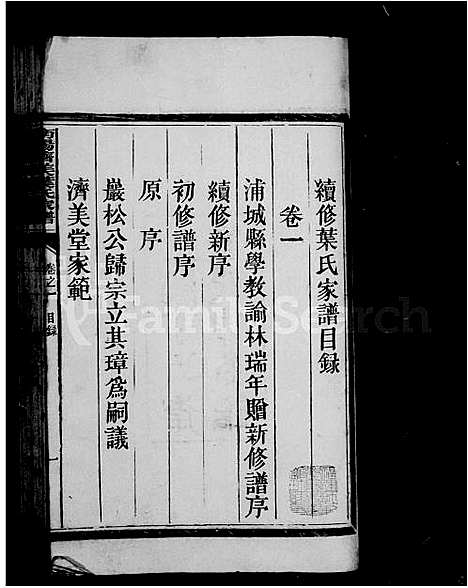 續修葉氏家譜目録
卷一
浦城縣學教諭林瑞年贈新修譜序
續修新序
初修譜序
原序
嚴松公歸宗立其璋爲嗣議
濟美堂家範
卷之一 目録
一
FamilySearch